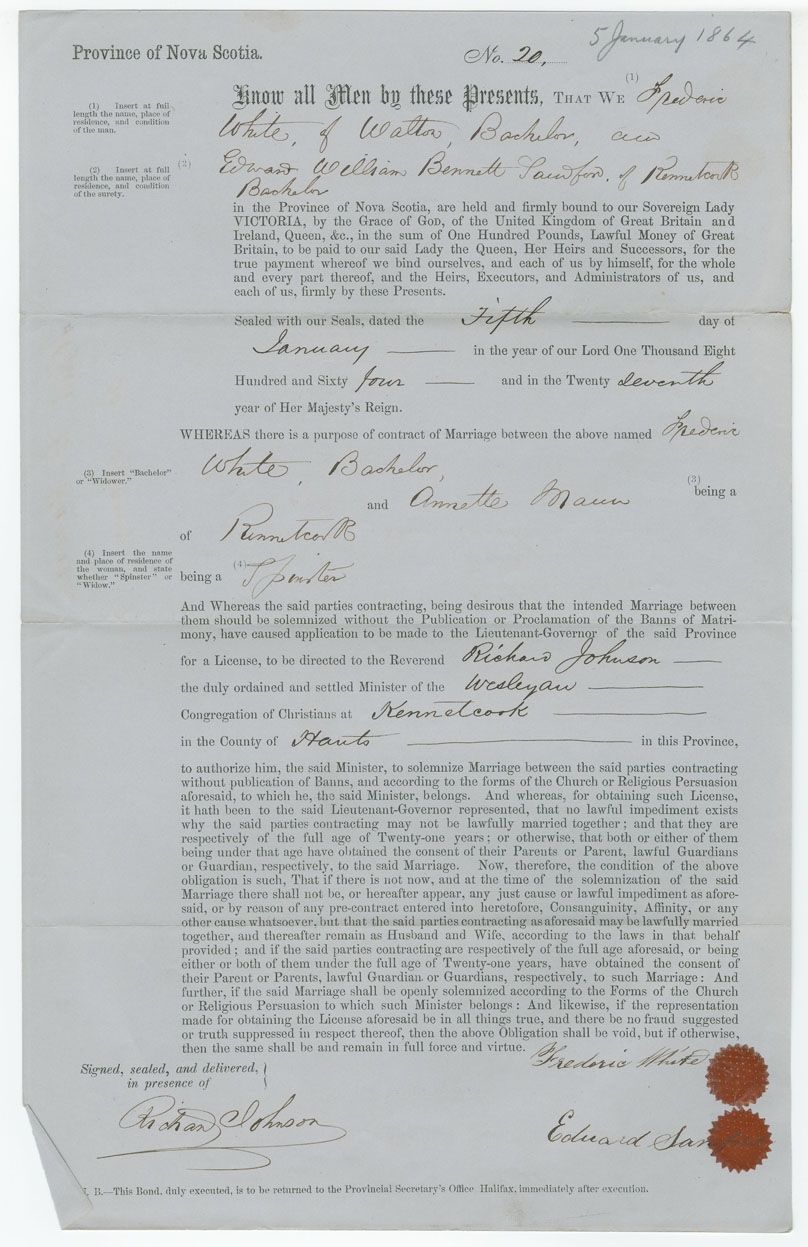 5 January 1864
Province of Nova Scotia.
No. 20,
(1)
Know all Men by these Presents, THAT WE Frederic
(1) Insert at full
length the name, place of
residence, and condition
of the man.
White, of Walton, Bachelor, and
(2) Insert at full
length the name, place of
residence, and condition
of the surety.
(2) Edward William Bennett Sanford, of Kennetcook
Bachelor
in the Province of Nova Scotia, are held and firmly bound to our Sovereign Lady
VICTORIA, by the Grace of GOD, of the United Kingdom of Great Britain and
Ireland, Queen, &c., in the sum of One Hundred Pounds, Lawful Money of Great
Britain, to be paid to our said Lady the Queen, Her Heirs and Successors, for the
true payment whereof we bind ourselves, and each of us by himself, for the whole
and every part thereof, and the Heirs, Executors, and Administrators of us, and
each of us, firmly by these Presents.
Sealed with our Seals, dated the Fifth day of
January in the year of our Lord One Thousand Eight
Hundred and Sixty four and in the Twenty seventh
year of Her Majesty's Reign.
WHEREAS there is a purpose of contract of Marriage between the above named Frederic
(3) Insert "Bachelor"
or "Widower."
White, Bachelor,
(3)
being a
and Annette Mann
of Kennetcook
(4) Insert the name
and place of residence of
the woman, and state
whether "Spinster" or
"Widow."
being a (4) Spinster
And Whereas the said parties contracting, being desirous that the intended Marriage between
them should be solemnized without the Publication or Proclamation of the Banns of Matri-
mony, have caused application to be made to the Lieutenant-Governor of the said Province
for a License, to be directed to the Reverend Richard Johnson
the duly ordained and settled Minister of the Wesleyan
Congregation of Christians at Kennetcook
in the County of Hants in this Province,
to authorize him, the said Minister, to solemnize Marriage between the said parties contracting
without publication of Banns, and according to the forms of the Church or Religious Persuasion
aforesaid, to which he, the said Minister, belongs. And whereas, for obtaining such License,
it hath been to the said Lieutenant-Governor represented, that no lawful impediment exists
why the said parties contracting may not be lawfully married together; and that they are
respectively of the full age of Twenty-one years; or otherwise, that both or either of them
being under that age have obtained the consent of their Parents or Parent, lawful Guardians
or Guardian, respectively, to the said Marriage. Now, therefore, the condition of the above
obligation is such, That if there is not now, and at the time of the solemnization of the said
Marriage there shall not be, or hereafter appear, any just cause or lawful impediment as afore-
said, or by reason of any pre-contract entered into heretofore, Consanguinity, Affinity, or any
other cause whatsoever, but that the said parties contracting as aforesaid may be lawfully married
together, and thereafter remain as Husband and Wife, according to the laws in that behalf
provided; and if the said parties contracting are respectively of the full age aforesaid, or being
either or both of them under the full age of Twenty-one years, have obtained the consent of
their Parent or Parents, lawful Guardian or Guardians, respectively, to such Marriage: And
further, if the said Marriage shall be openly solemnized according to the Forms of the Church
or Religious Persuasion to which such Minister belongs: And likewise, if the representation
made for obtaining the License aforesaid be in all things true, and there be no fraud suggested
or truth suppressed in respect thereof, then the above Obligation shall be void, but if otherwise,
then the same shall be and remain in full force and virtue.
Frederic White
Signed, sealed, and delivered,
in presence of
Richard Johnson
Edward Sanford
N. B.—This Bond, duly executed, is to be returned to the Provincial Secretary's Office Halifax, immediately after execution.